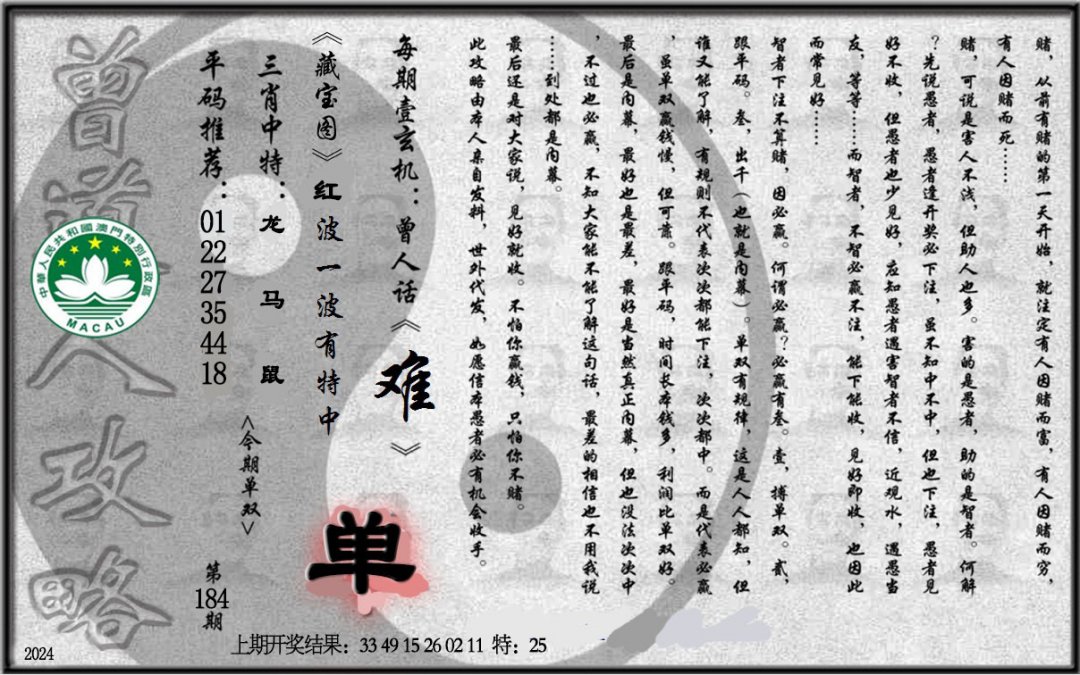 赌，从前有赌的第一天开始，就注定有人因赌而富，有人因赌而穷，
有人因赌而死……
赌，可说是害人不浅，但助人也多。害的是愚者，助的是智者。何解
？先说愚者，愚者逢开奖必下注，虽不知中不中，但也下注，愚者见
好不收，但愚者也少见好，应知愚者遇害智者不信，近观水，遇愚当
友，等等……而智者，不智必赢不注，能下能收，见好即收，也因此
而常见好……
智者下注不算赌，因必赢。何谓必赢？必赢有叁。壹，搏单双。贰，
跟平码。叁，出千（也就是内幕）。单双有规律，这是人人都知，但
谁又能了解，有规则不代表次次都能下注，次次都中。而是代表必赢
，虽单双赢钱慢，但可靠。跟平码，时间长本钱多，利润比单双好。
最后是内幕，最好也是最差，最好是当然真正内幕，但也没法次次中
，不过也必赢，不知大家能不能了解这句话，最差的相信也不用我说
……到处都是内幕。
最后还是对大家说，见好就收。不怕你赢钱，只怕你不赌。
此攻略由本人亲自发料，世外代发，如愿信本愚者必有机会收手。
每期壹玄机：曾人话《难》
《藏宝图》红波一波有特中
单
三肖中特：龙 马 鼠
<今期单双>
平码推荐：01 22 27 35 44 18
第184期
曾道人攻略
中華人民共和國澳門特別行政區
MACAU
上期开奖结果：33 49 15 26 02 11 特：25
2024